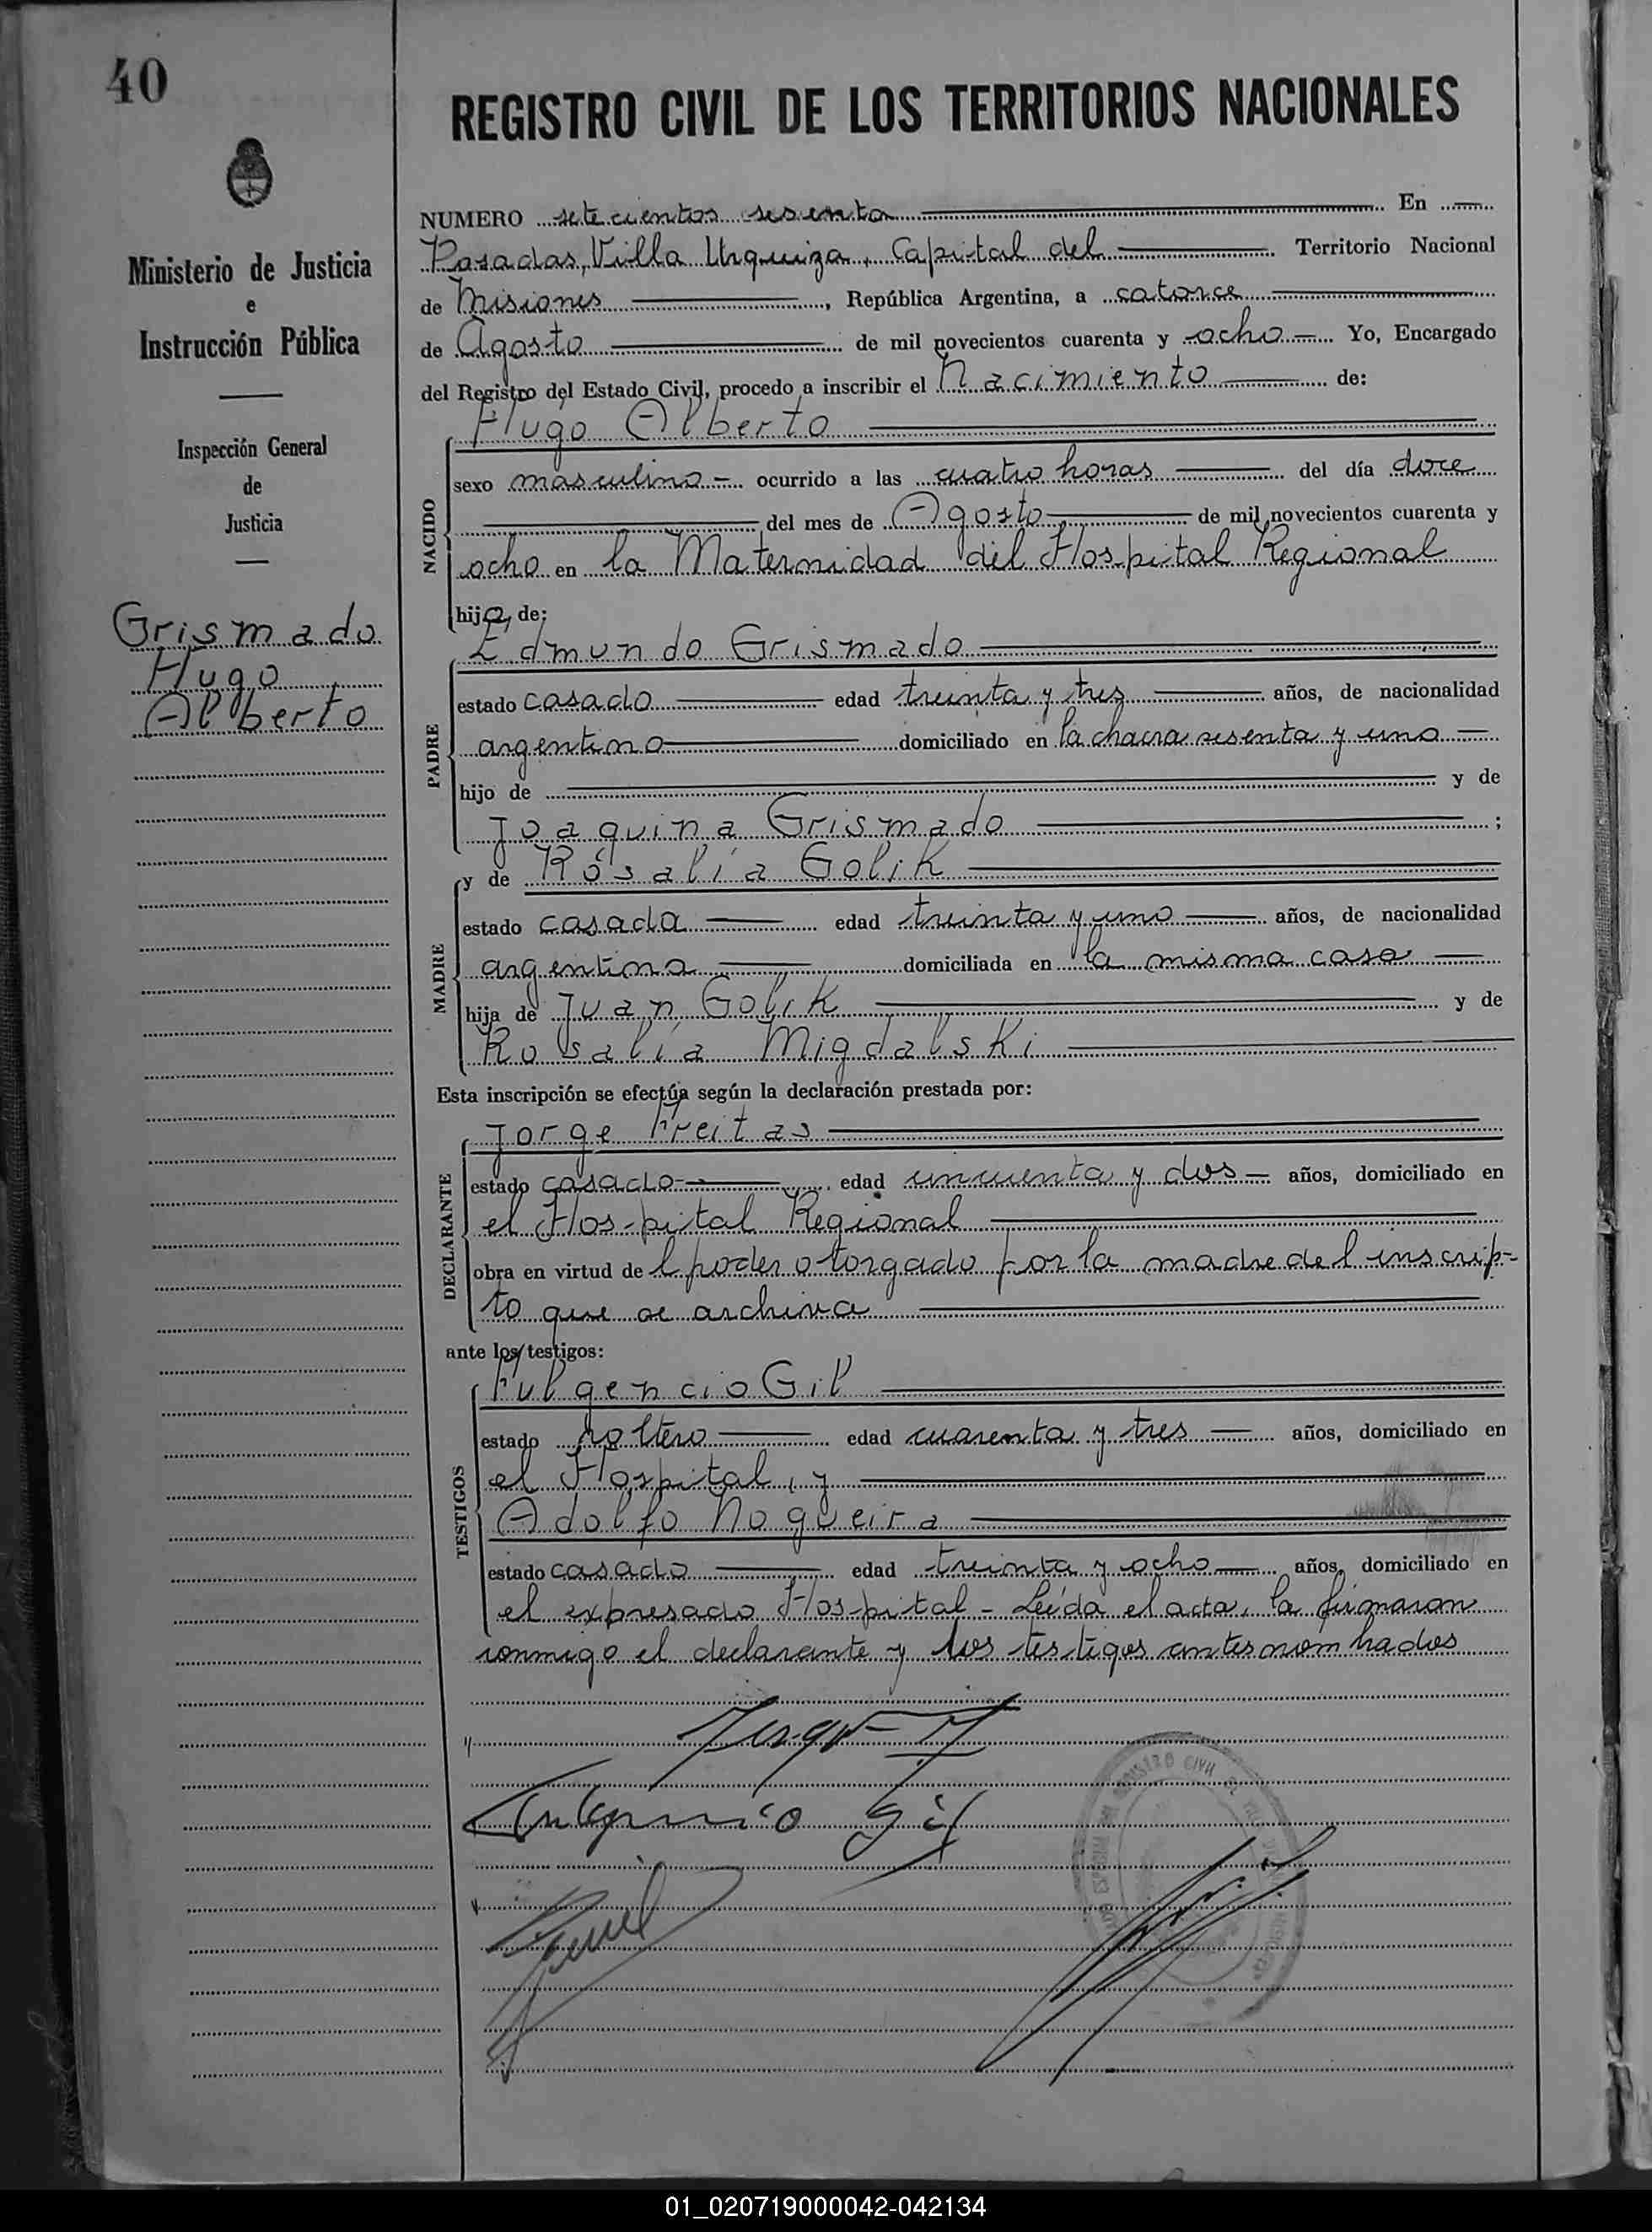 40
REGISTRO CIVIL DE LOS TERRITORIOS NACIONALES
Ministerio de Justicia
e
Instrucción Pública
Inspección General
de
Justicia
Grismado
Hugo
Alberto
NUMERO setecientos sesenta En
Posadas, Villa Urquiza, Capital del Territorio Nacional
de Misiones, República Argentina, a catorce
de Agosto de mil novecientos cuarenta y ocho Yo, Encargado
del Registro del Estado Civil, procedo a inscribir el Nacimiento de:
NACIDO
Hugo Alberto
sexo masculino ocurrido a las cuatro horas del día doce
del mes de Agosto de mil novecientos cuarenta y
ocho en la Maternidad del Hospital Regional
hijo, de:
PADRE
Edmundo Grismado
estado casado edad treinta y tres años, de nacionalidad
argentino domiciliado en la chacra sesenta y uno
hijo de y de
Joaquina Grismado ;
MADRE
y de Rosalía Golik
estado casada edad treinta y uno años, de nacionalidad
argentina domiciliada en la misma casa
hija de Juan Golik y de
Rosalía Migdalski
Esta inscripción se efectúa según la declaración prestada por:
DECLARANTE
Jorge Freitas
estado casado edad cincuenta y dos años, domiciliado en
el Hospital Regional
obra en virtud del poder otorgado por la madre del inscrip-
to que se archiva
ante los testigos:
TESTIGOS
Fulgencio Gil
estado soltero edad cuarenta y tres años, domiciliado en
el Hospital, y
Adolfo Nogueira
estado casado edad treinta y ocho años, domiciliado en
el expresado Hospital - Leída el acta, la firmaron
conmigo el declarante y los testigos antes nombrados
Fulgencio Gil
REGISTRO CIVIL DE
01_020719000042-042134